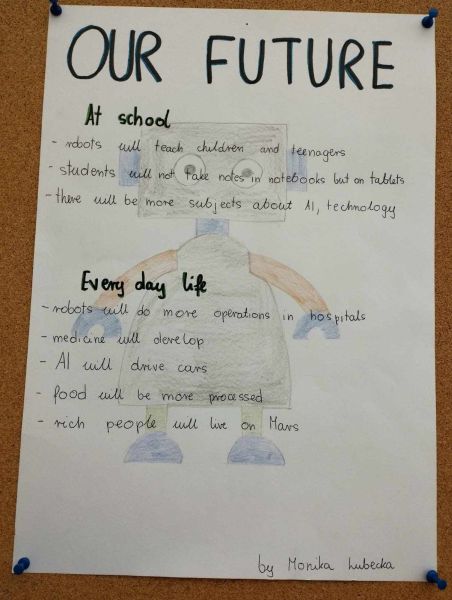 OUR FUTURE
At school
- robots will teach children and teenagers
- students will not take notes in notebooks but on tablets
- there will be more subjects about AI, technology
Every day life
- robots will do more operations in hospitals
- medicine will develop
- AI will drive cars
- food will be more processed
- rich people will live on Mars
by Monika Łubecka